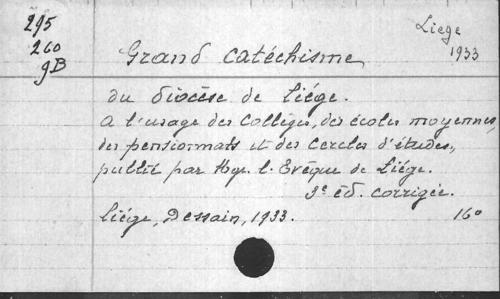 295
260
gB
Liége
1933
Grand catéchisme
du diocèse de Liége.
a l'usage des Collèges, des écoles moyennes,
des pensionnats et des Cercles d'études,
publié par Mgr. l. Evêque de Liége.
3e éd. corrigée.
Liége, Dessain, 1933.
16o